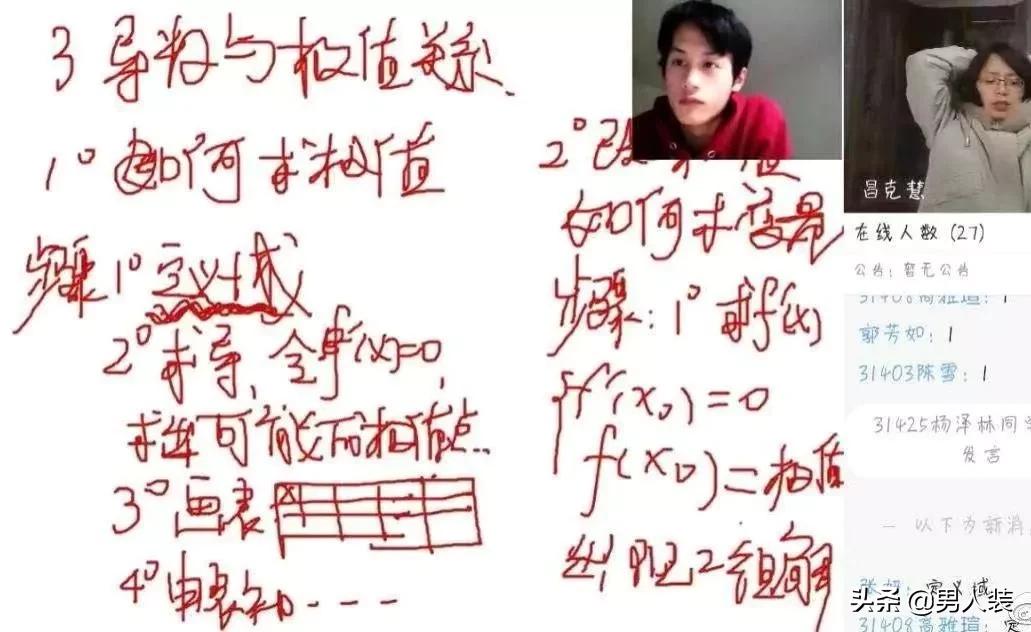 3 导数与极值关系.
1° 如何求极值
步骤1° 定义域
2° 求导, 令f'(x)=0,
求出可能的极值点..
3° 画表
x
4° 由表知....
2° 已
值
如何求变量
步骤: 1° 求f'(x)
f'(x₀)=0
f(x₀)=极值
昌克慧
在线人数(27)
公告: 暂无公告
31408高雅瑄: 1
郭芳如: 1
31403陈雪: 1
31425杨泽林同
发言
以下为新消
定义域
31408高雅瑄: 定
头条 @男人装